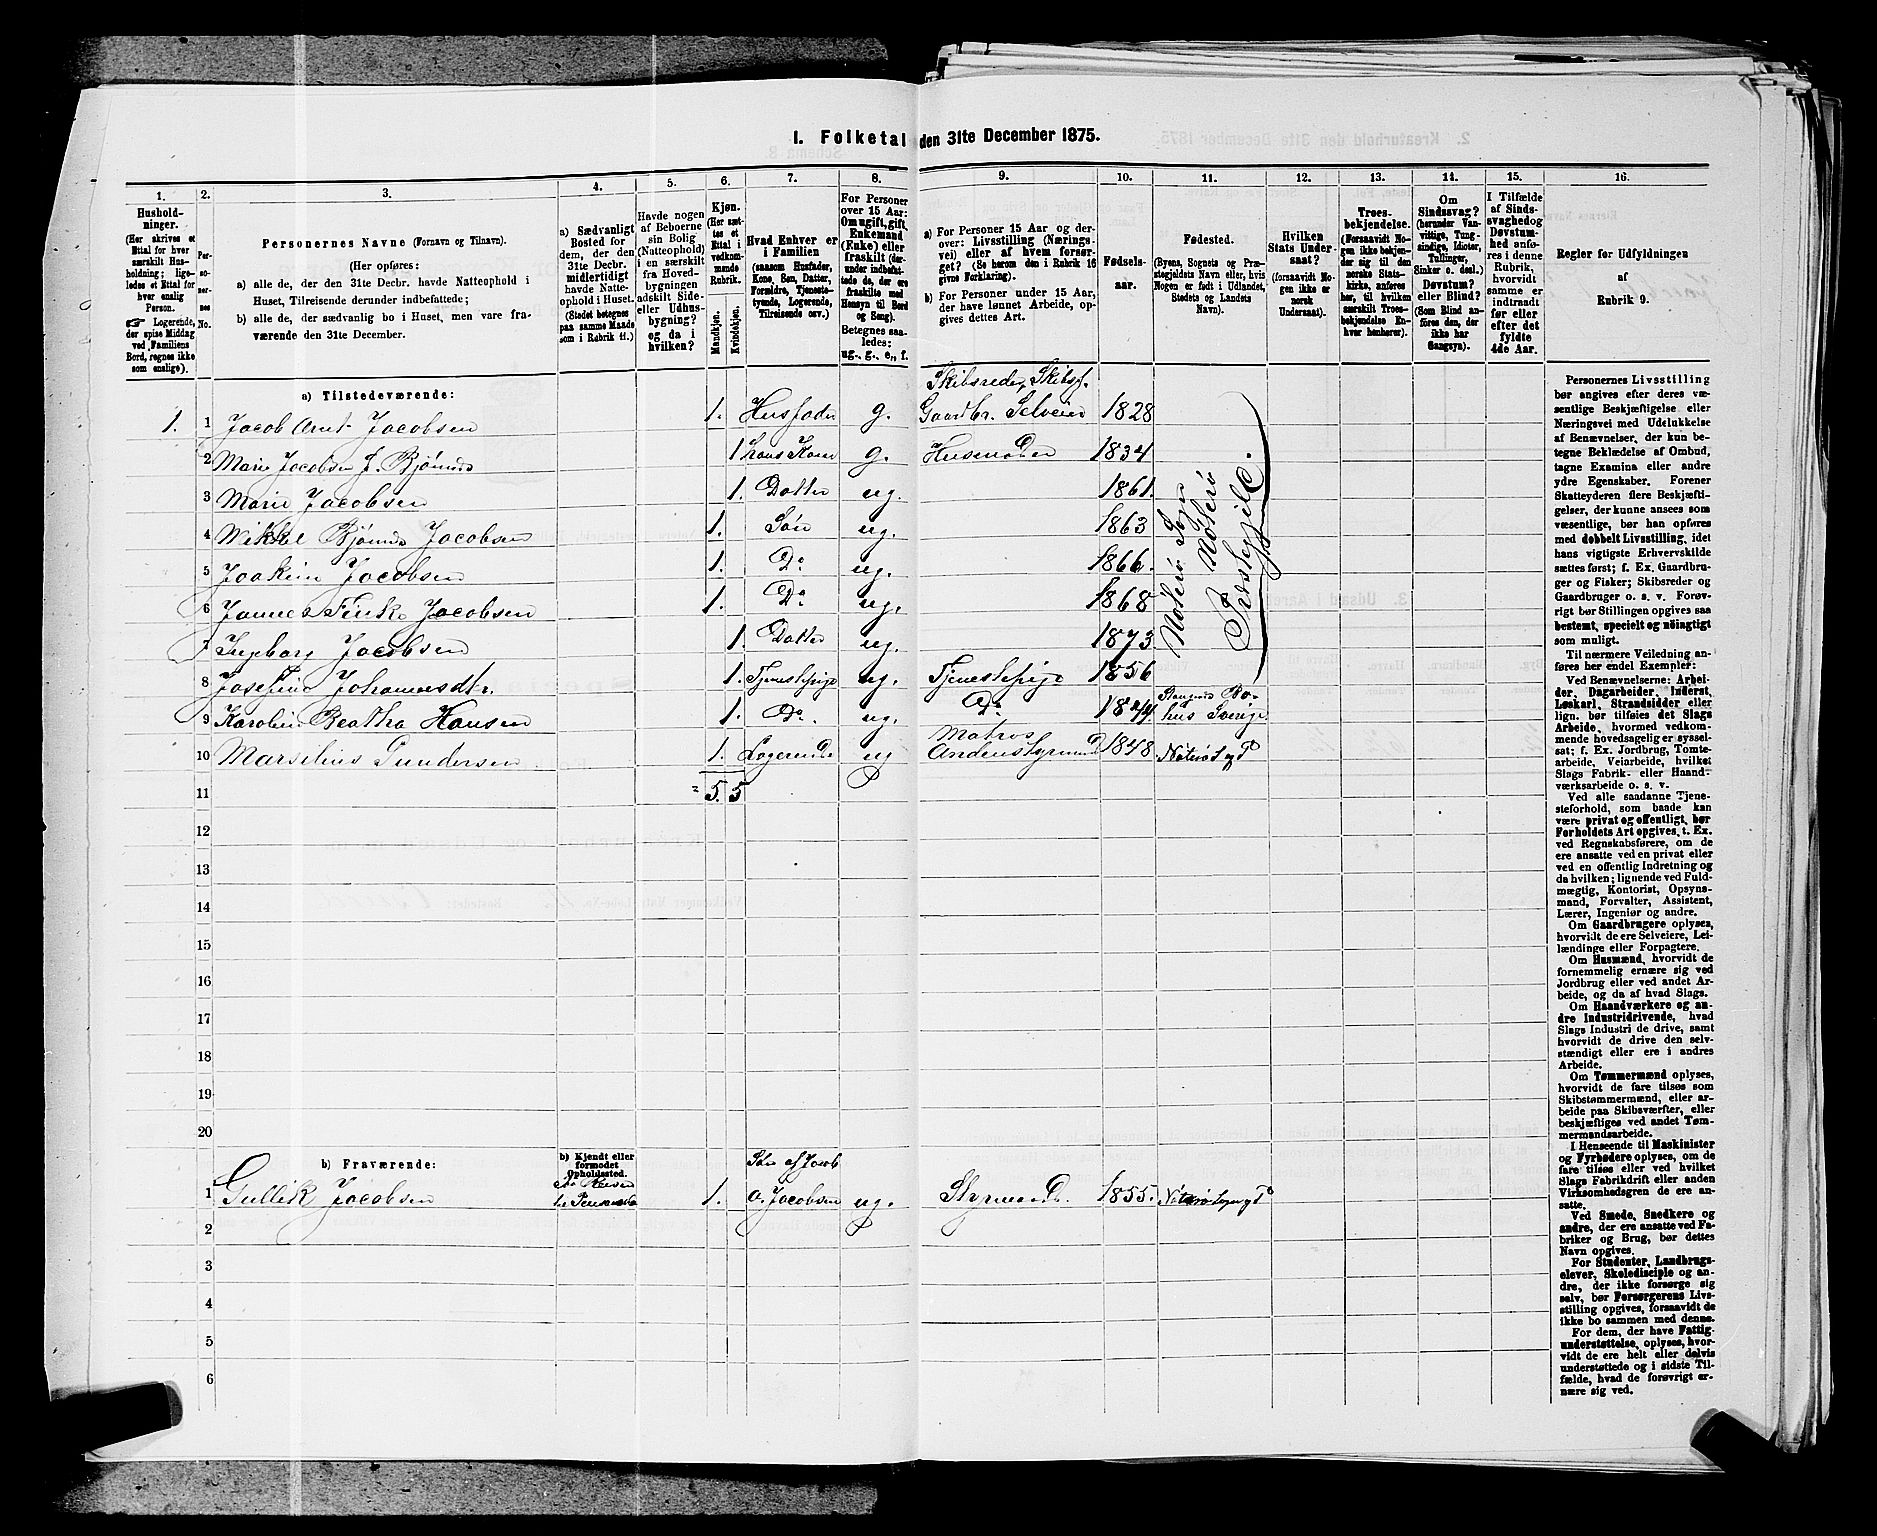 I. Folketal den 31te December 1875.
1. 2. 3. 4. 5. 6. 7. 8. 9. 10. 11. 12. 13. 14. 15. 16.
Hushold-
ninger.
(Her skrives et
Ettal for hver
særskilt Hus-
holdning; lige-
ledes et Ettal for
hver enslig
Person.
☞ Logerende,
der spise Middag
ved Familiens
Bord, regnes ikke
som enslige).
Per-
so-
ner-
nes
No.
Personernes Navne (Fornavn og Tilnavn).
(Her opføres:
a) alle de, der den 31te Decbr. havde Natteophold i
Huset, Tilreisende derunder indbefattede;
b) alle de, der sædvanlig bo i Huset, men vare fra-
værende den 31te December.
a) Sædvanligt
Bosted for
dem, der den
31te Decbr.
midlertidigt
havde Natte-
ophold i Huset.
(Stedet betegnes
paa samme Maade
som i Rubrik 11.)
Havde nogen
af Beboerne
sin Bolig
(Natteophold)
i en særskilt
fra Hoved-
bygningen
adskilt Side-
eller Udhus-
bygning?
og da i
hvilken?
Kjøn.
(Her sæt-
tes et
Ettal i
vedkom-
mende
Rubrik.
Mandkjøn.
Kvindekjøn.
Hvad Enhver er
i Familien
(saasom Husfader,
Kone, Søn, Datter,
Forældre, Tjeneste-
tyende, Logerende,
Tilreisende osv.)
For Personer
over 15 Aar:
Om ugift, gift,
Enkemand
(Enke) eller
fraskilt (der-
under indbefat-
tede de, der ere
fraskilte med
Hensyn til Bord
og Seng).
Betegnes saa-
ledes:
ug., g., e., f.
a) For Personer 15 Aar og der-
over: Livsstilling (Nærings-
vei) eller af hvem forsør-
get? (Se herom den i Rubrik 16
givne Forklaring).
b) For Personer under 15 Aar,
der have lønnet Arbeide, op-
gives dettes Art.
Fødsels-
aar.
Fødested.
(Byens, Sognets og Præ-
stegjeldets Navn eller, hvis
Nogen er født i Udlandet,
Stedets og Landets
Navn).
Hvilken
Stats Under-
saat?
(forsaavidt No-
gen ikke er
norsk
Undersaat).
Troes-
bekjendelse.
(Forsaavidt No-
gen ikke bekjen-
der sig til den
norske Stats-
kirke, anføres
her, til hvilken
særskilt Troes-
bekjendelse En-
hver henhører).
Om
Sindssvag?
(herunder Van-
vittige, Tung-
sindige, Idioter,
Tullinger,
Sinker o. desl.)
Døvstum?
eller Blind?
(Som Blind an-
føres den, der
ikke har
Gangsyn).
I Tilfælde
af Sinds-
svaghed og
Døvstum-
hed anfø-
res i denne
Rubrik,
hvorvidt
samme er
indtraadt
før eller
efter det
fyldte
4de Aar.
Regler for Udfyldningen
af
Rubrik 9.
a) Tilstedeværende:
1. 1 Jacob Arnt Jacobsen 1. Husfader g. Skibsreder, Skibsf. Gaardbr. Selveier 1828
2 Marie Jacobsen f. Bjønnes 1 hans Kone g. Husmoder 1834
3 Marie Jacobsen 1. Datter ug. 1861.
4 Mikkel Bjønnes Jacobsen 1. Søn ug. 1863
5 Joakim Jacobsen 1. Do ug. 1866.
6 Jannes Finke Jacobsen 1. Do ug. 1868
7 Ingborg Jacobsen 1. Datter ug. 1873
Nøterø Sogn
Nøterø
Præstegjeld.
8 Josefine Johannesdtr. 1. Tjenestepige ug. Tjenestepige 1856
9 Karoline Beatha Hansen 1. Do. ug. Do 1844 Bo-
hus Sverige
10 Marsilius Gundersen 1. Logerende ug Matros Andenstyrmand 1848 Nøterø S og P
11 = 5. 5
12
13
14
15
16
17
18
19
20
b) Fraværende:
b) Kjendt eller
formodet
Opholdssted.
1 Gullik Jacobsen 1. Søn af Jacob A. Jacobsen ug. Styrmand. 1855. Nøterø Sogn og P
2
3
4
5
6
Personernes Livsstilling
bør angives efter deres væ-
sentlige Beskjæftigelse eller
Næringsvei med Udelukkelse
af Benævnelser, der kun be-
tegne Beklædelse af Ombud,
tagne Examina eller andre
ydre Egenskaber. Forener
Skatteyderen flere Beskjæfti-
gelser, der kunne ansees som
væsentlige, bør han opføres
med dobbelt Livsstilling, idet
hans vigtigste Erhvervskilde
sættes først; f. Ex. Gaardbru-
ger og Fisker; Skibsreder og
Gaardbruger o. s. v. Forøv-
rigt bør Stillingen opgives saa
bestemt, specielt og nøiagtigt
som muligt.
Til nærmere Veiledning an-
føres her endel Exempler:
Ved Benævnelserne: Arbei-
der, Dagarbeider, Inderst,
Løskarl, Strandsidder eller
lign. bør tilføies det Slags
Arbeide, hvormed vedkom-
mende hovedsagelig er syssel-
sat; f. Ex. Jordbrug, Tomte-
arbeide, Veiarbeide, hvilket
Slags Fabrik- eller Haand-
værksarbeide o. s. v.
Ved alle saadanne Tjene-
steforhold, som baade kan
være privat og offentligt, bør
Forholdets Art opgives, t. Ex.
ved Regnskabsførere, om de
ere ansatte ved en privat eller
ved en offentlig Indretning og
da hvilken; lignende ved Fuld-
mægtig, Kontorist, Opsyns-
mand, Forvalter, Assistent,
Lærer, Ingeniør og andre.
Om Gaardbrugere oplyses,
hvorvidt de ere Selveiere, Lei-
lændinge eller Forpagtere.
Om Husmænd, hvorvidt de
fornemmelig ernære sig ved
Jordbrug eller ved andet Ar-
beide, og da af hvad Slags.
Om Haandværkere og an-
dre Industridrivende, hvad
Slags Industri de drive, samt
hvorvidt de drive den selv-
stændigt eller ere i andres
Arbeide.
Om Tømmermænd oplyses,
hvorvidt de fare tilsøs som
Skibstømmermænd, eller ar-
beide paa Skibsværfter, eller
beskjæftiges ved andet Tøm-
mermandsarbeide.
I Henseende til Maskinister
og Fyrbødere oplyses, om de
fare tilsøs eller ved hvilket
Slags Fabrikdrift eller anden
Virksomhedsgren de ere an-
satte.
Ved Smede, Snedkere og
andre, der ere ansatte ved Fa-
briker og Brug, bør dettes
Navn opgives.
For Studenter, Landbrugs-
elever, Skoledisciple og an-
dre, der ikke forsørge sig
selv, bør Forsørgerens Livs-
stilling opgives, forsaavidt de
ikke bo sammen med denne.
For dem, der have Fattig-
understøttelse, oplyses, hvor-
vidt de ere helt eller delvis
understøttede og i sidste Til-
fælde, hvad de forøvrigt er-
nære sig ved.